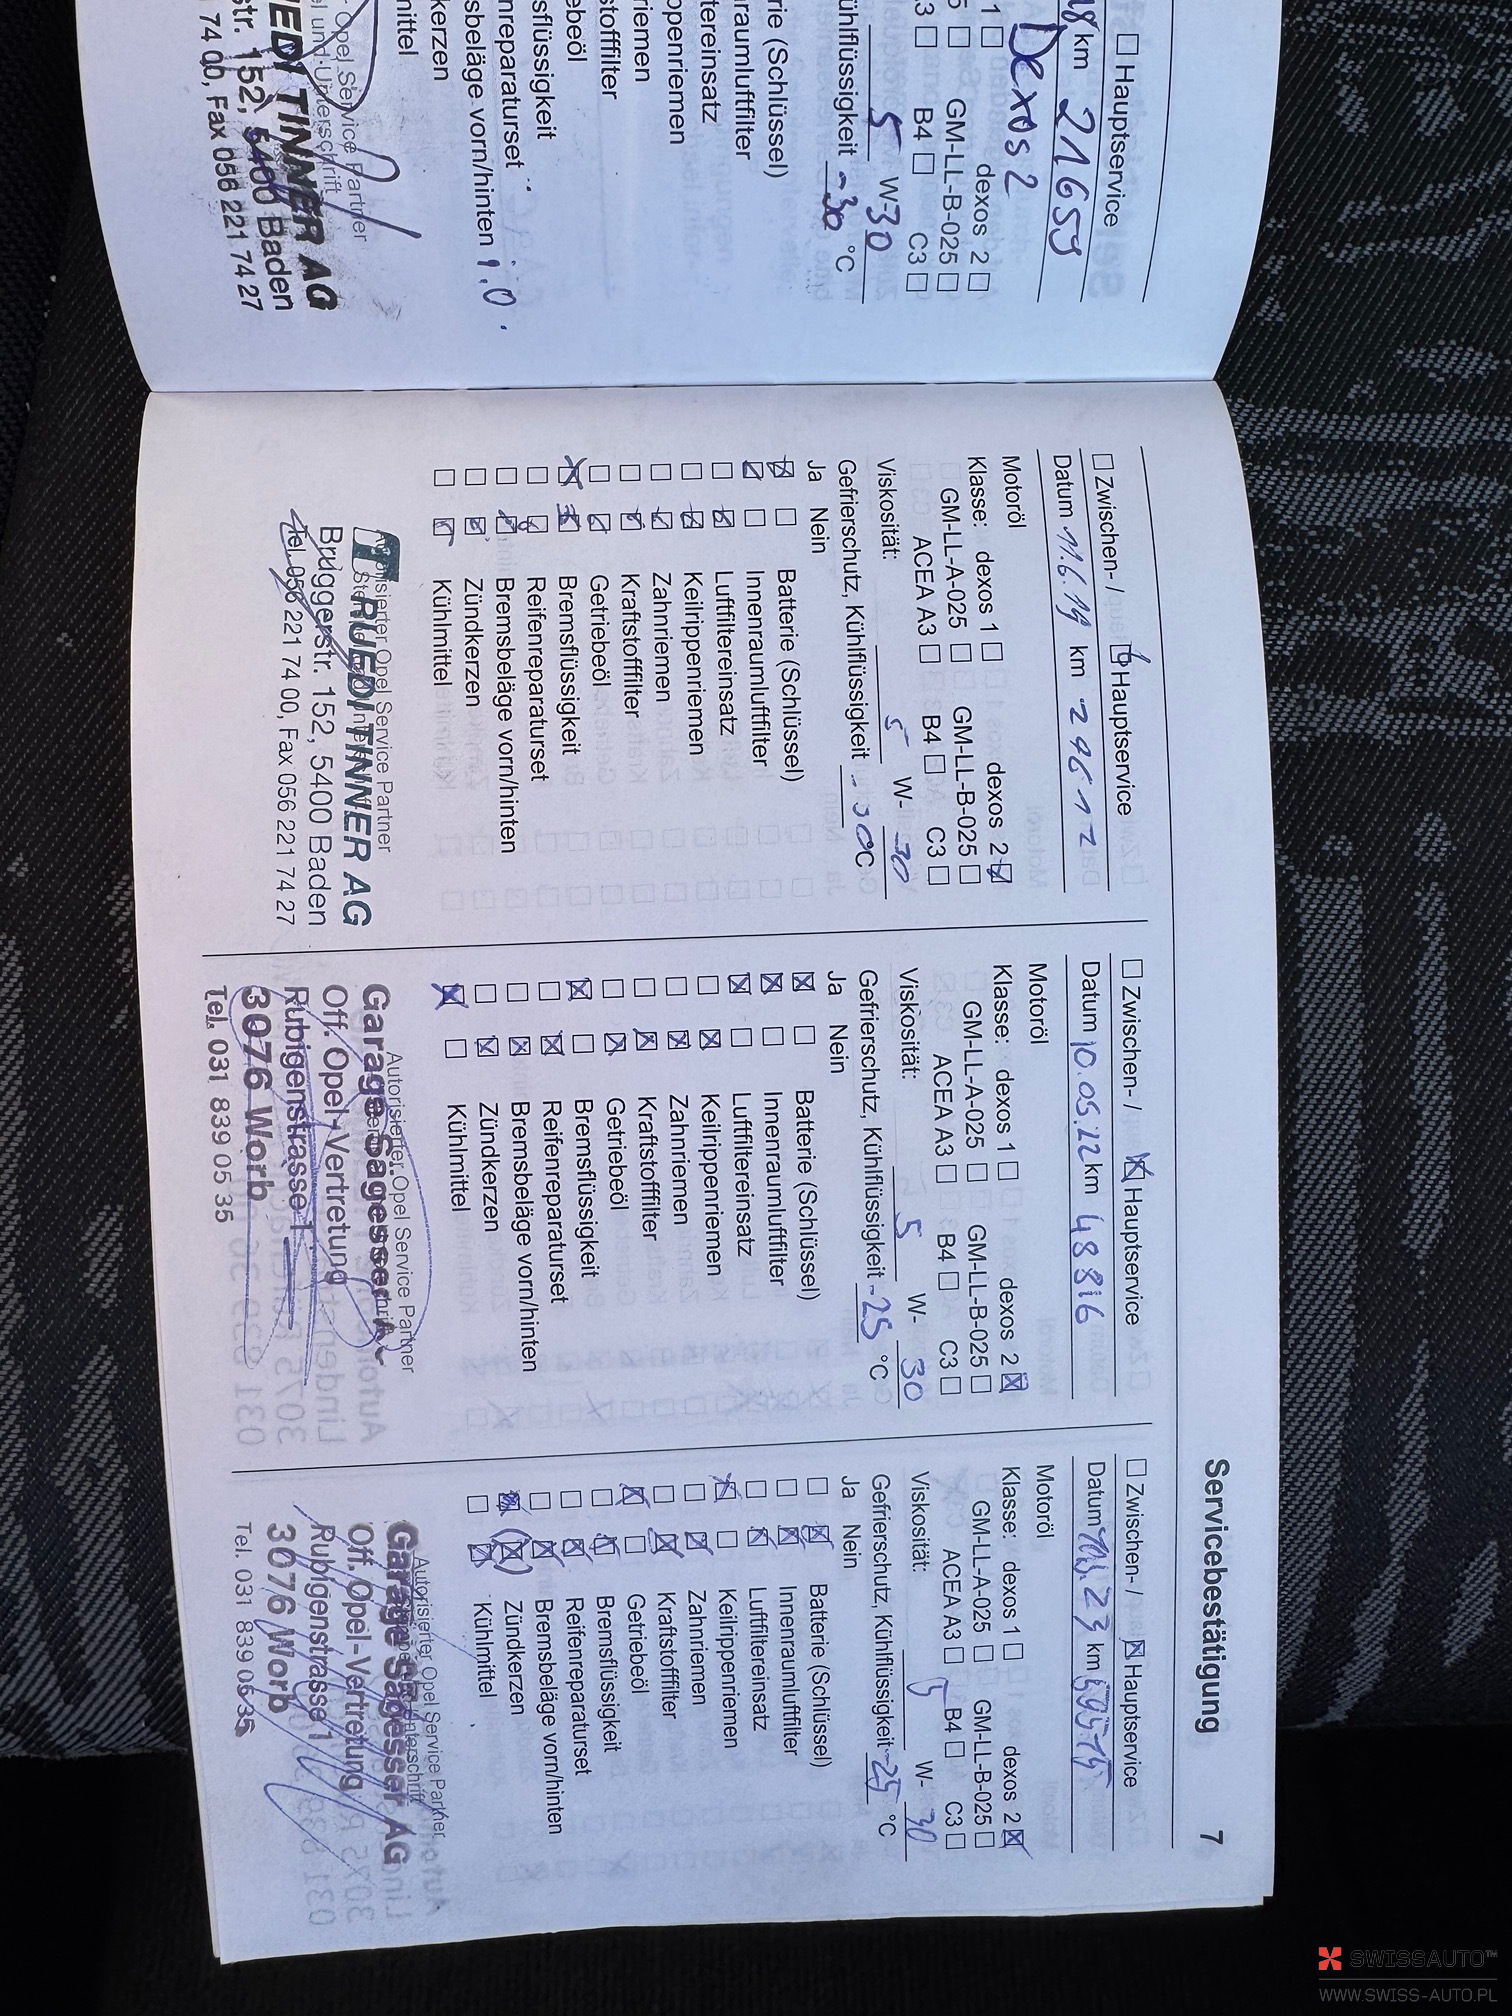 Hauptservice
km 21659
Dexos 2
1 dexos 2
GM-LL-B-025
B4 C3
5 W-30
ühlflüssigkeit -30 °C
rie (Schlüssel)
raumluftfilter
tereinsatz
ppenriemen
riemen
stofffilter
ebeöl
sflüssigkeit
nreparaturset
sbeläge vorn/hinten i.O.
kerzen
mittel
Opel Service Partner
und Unterschrift
EDI TINNER AG
str. 152, 5400 Baden
74 00, Fax 056 221 74 27
Servicebestätigung 7
Zwischen- / Hauptservice
Datum 11.6.19 km 29612
Motoröl
Klasse: dexos 1 dexos 2
GM-LL-A-025 GM-LL-B-025
ACEA A3 B4 C3
Viskosität: 5 W-30
Gefrierschutz, Kühlflüssigkeit -30 °C
Ja Nein
Batterie (Schlüssel)
Innenraumluftfilter
Luftfiltereinsatz
Keilrippenriemen
Zahnriemen
Kraftstofffilter
Getriebeöl
Bremsflüssigkeit
Reifenreparaturset
Bremsbeläge vorn/hinten
Zündkerzen
Kühlmittel
Autorisierter Opel Service Partner
RUEDI TINNER AG
Bruggerstr. 152, 5400 Baden
Tel. 056 221 74 00, Fax 056 221 74 27
Zwischen- / Hauptservice
Datum 10.05.22 km 48816
Motoröl
Klasse: dexos 1 dexos 2
GM-LL-A-025 GM-LL-B-025
ACEA A3 B4 C3
Viskosität: 5 W-30
Gefrierschutz, Kühlflüssigkeit -25 °C
Ja Nein
Batterie (Schlüssel)
Innenraumluftfilter
Luftfiltereinsatz
Keilrippenriemen
Zahnriemen
Kraftstofffilter
Getriebeöl
Bremsflüssigkeit
Reifenreparaturset
Bremsbeläge vorn/hinten
Zündkerzen
Kühlmittel
Autorisierter Opel Service Partner
Garage Sagesser A
Off. Opel-Vertretung
Rubigenstrasse 1
3076 Worb
Tel. 031 839 05 35
Zwischen- / Hauptservice
Datum km
Motoröl
Klasse: dexos 1 dexos 2
GM-LL-A-025 GM-LL-B-025
ACEA A3 B4 C3
Viskosität: 5 W-30
Gefrierschutz, Kühlflüssigkeit -25 °C
Ja Nein
Batterie (Schlüssel)
Innenraumluftfilter
Luftfiltereinsatz
Keilrippenriemen
Zahnriemen
Kraftstofffilter
Getriebeöl
Bremsflüssigkeit
Reifenreparaturset
Bremsbeläge vorn/hinten
Zündkerzen
Kühlmittel
Autorisierter Opel Service Partner
Garage Sagesser AG
Off. Opel-Vertretung
Rubigenstrasse 1
3076 Worb
Tel. 031 839 05 35
SWISSAUTO™
WWW.SWISS-AUTO.PL